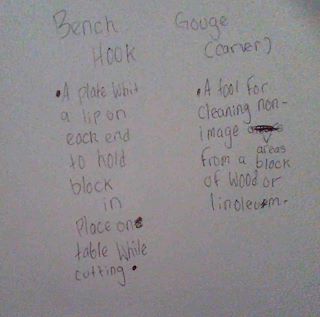 Bench
HOOK
•A plate whit
a lip on
each end
to hold
block
in
Place on
table while
cutting.
Gouge
(carver)
•A tool for
cleaning non-
image areas
from a block
of wood or
linoleum.